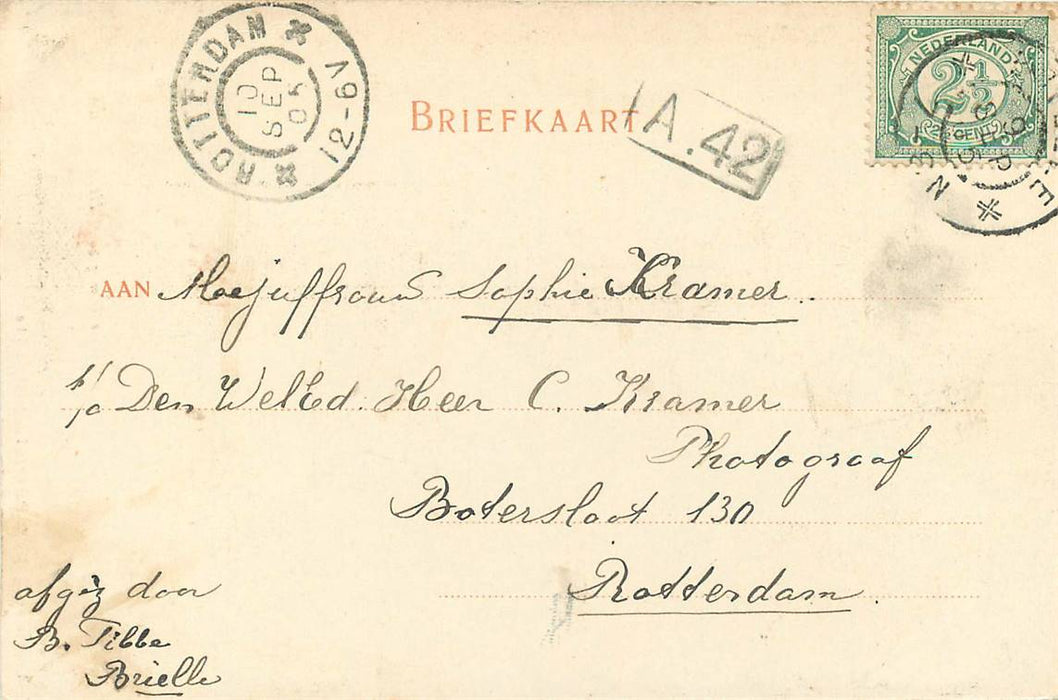 ROTTERDAM
10 SEP 05
12-6V
BRIEFKAART
A.42
NEDERLAND
2 1/2
CENT
SEP
AAN Mejuffrouw Sophie Kramer.
p/a Den WelEd. Heer C. Kramer
Photograaf
Botersloot 130
Rotterdam.
afgez door
B. Tibbe
Brielle